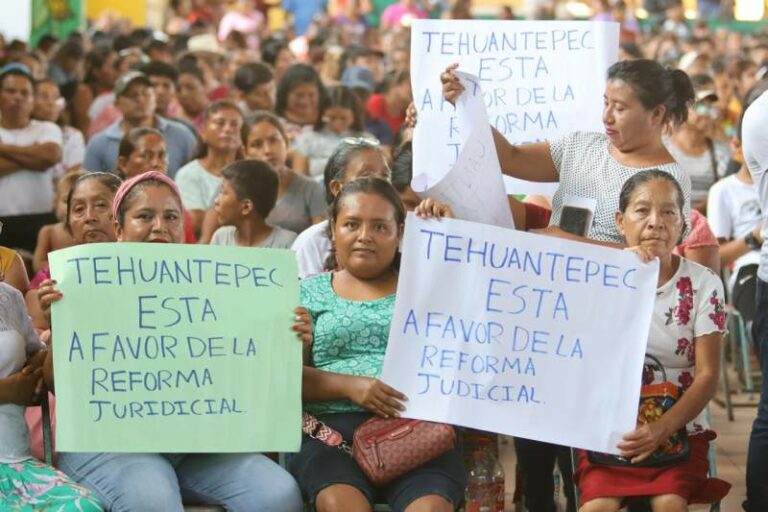 TEHUANTEPEC
ESTA
A FAVOR DE LA
REFORMA
JURIDICIAL.
TEHUANTEPEC
ESTA
A FAVOR DE LA
REFORMA
JUDICIAL.
TEHUANTEPEC
ESTA
A FAVOR DE LA
REFORMA